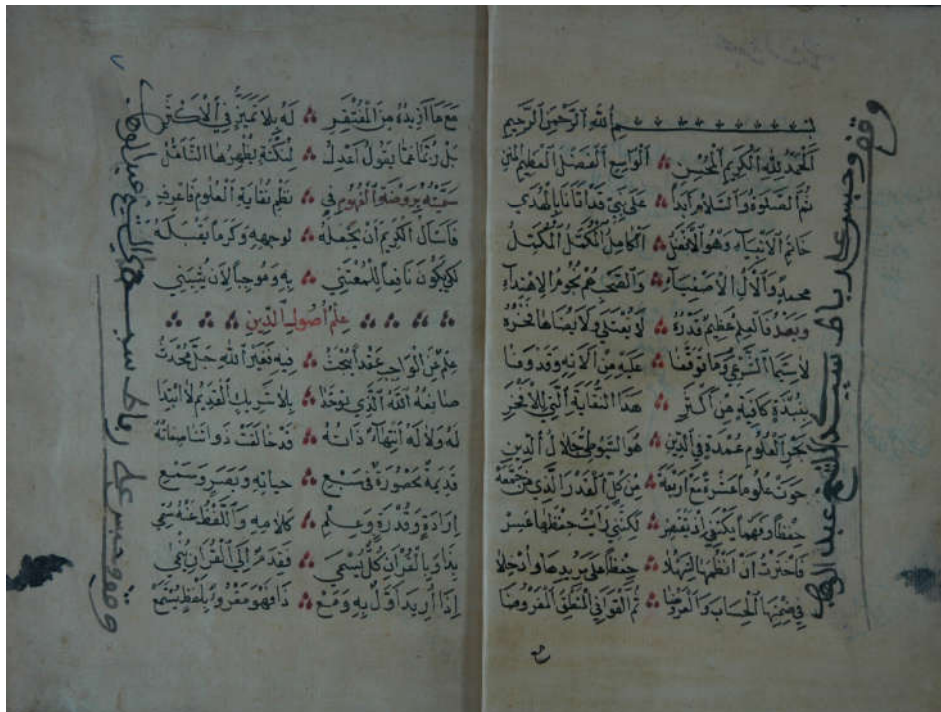 بسم الله الرحمن الرحيم
الحمد لله الكريم المحسن ∴ الواسع الفضل العظيم المنن
ثم الصلوة والسلام أبدا ∴ على نبي قد أتانا بالهدى
خاتم الأنبياء وهو الأفضل ∴ الكامل المكمل المكمل
محمد والآل الأصفياء ∴ والصحب هم نجوم الاهتداء
وبعد فالعلم عظيم قدره ∴ لا يعتلى ولا يضاها فخره
لا سيما الشرعي وما توقفا ∴ عليه من آلاته وقد وفا
بنبذة كافية من أكثر ∴ هذا النقاية التي
بحر العلوم عمدة في الدين ∴ هو السيوطي جلال الدين
حوت علوما عشرة مع أربعة ∴ من كل القدر الذي من جمعه
حفظا وفهما يكتفي إذ تفتقر ∴ لكنني رأيت حفظها عسر
فاخترت أن أنظمها ليسهلا ∴ حفظا على مريدها وأدخلا
في ضمنها الحساب والعروضا ∴ ثم القوافي المنطق المفروضا
وقف وحبس على رباط سيدي الشيخ عبد الوهاب
مع ما أزيده من المفتقر ∴ له بلا تميز في الأكثر
بل ربما عما يقول أعدل ∴ لنكتة يظهرها التأمل
سميته بروضة الفهوم في ∴ نظم نقاية العلوم فاعرف
فأسأل الكريم أن يجعله ∴ لوجهه وكرما يقبله
لكي يكون نافعا للمعتني ∴ به وموجبا لأن يثيبني
∴ ∴ ∴ علم أصول الدين ∴ ∴ ∴
علم عن الواجب عقدا يبحث ∴ فيه فغير الله جل محدث
صانعه الله الذي توحدا ∴ بلا شريك القديم لا ابتدا
له ولا له انتهاء ذاته ∴ قد خالفت ذواتنا صفاته
قديمة محصورة في سبع ∴ حياته وبصر وسمع
إرادة وقدرة وعلم ∴ كلامه واللفظ عنه
بذا وبالقرآن كل يسمي ∴ فقدم إلى القرآن ينمي
إذا أريد أول به ومع ∴ ذا فهو مقروء بلفظ يستمع
وقف وحبس على رباط سيدي الشيخ عبد الوهاب